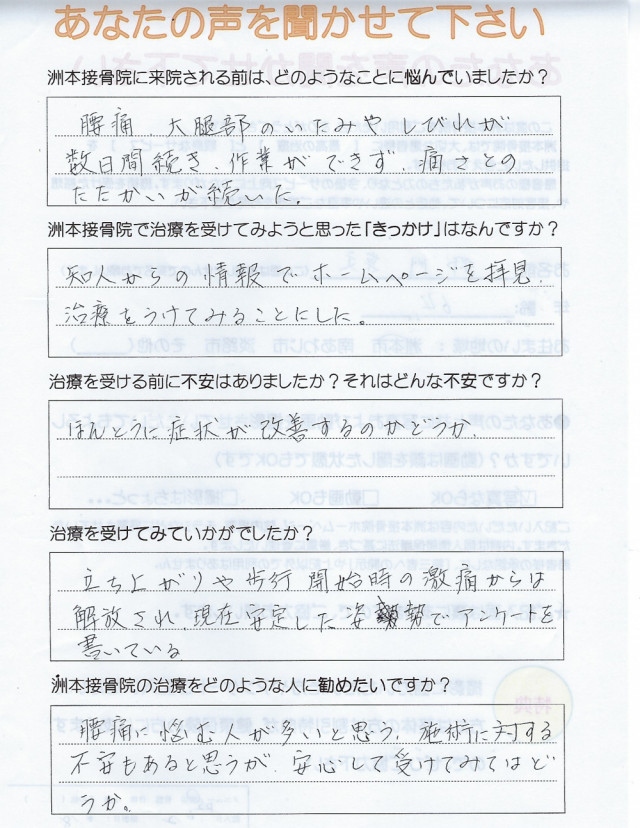 あなたの声を聞かせて下さい
洲本接骨院に来院される前は、どのようなことに悩んでいましたか？
腰痛、大腿部のいたみやしびれが
数日間続き、作業ができず、痛さとの
たたかいが続いた。
洲本接骨院で治療を受けてみようと思った「きっかけ」はなんですか？
知人からの情報でホームページを拝見、
治療をうけてみることにした。
治療を受ける前に不安はありましたか？それはどんな不安ですか？
ほんとうに症状が改善するのかどうか、
治療を受けてみていかがでしたか？
立ち上がりや歩行開始時の激痛からは
解放され、現在安定した姿勢でアンケートを
書いている
洲本接骨院の治療をどのような人に勧めたいですか？
腰痛に悩む人が多いと思う、施術に対する
不安もあると思うが、安心して受けてみてはど
うか。